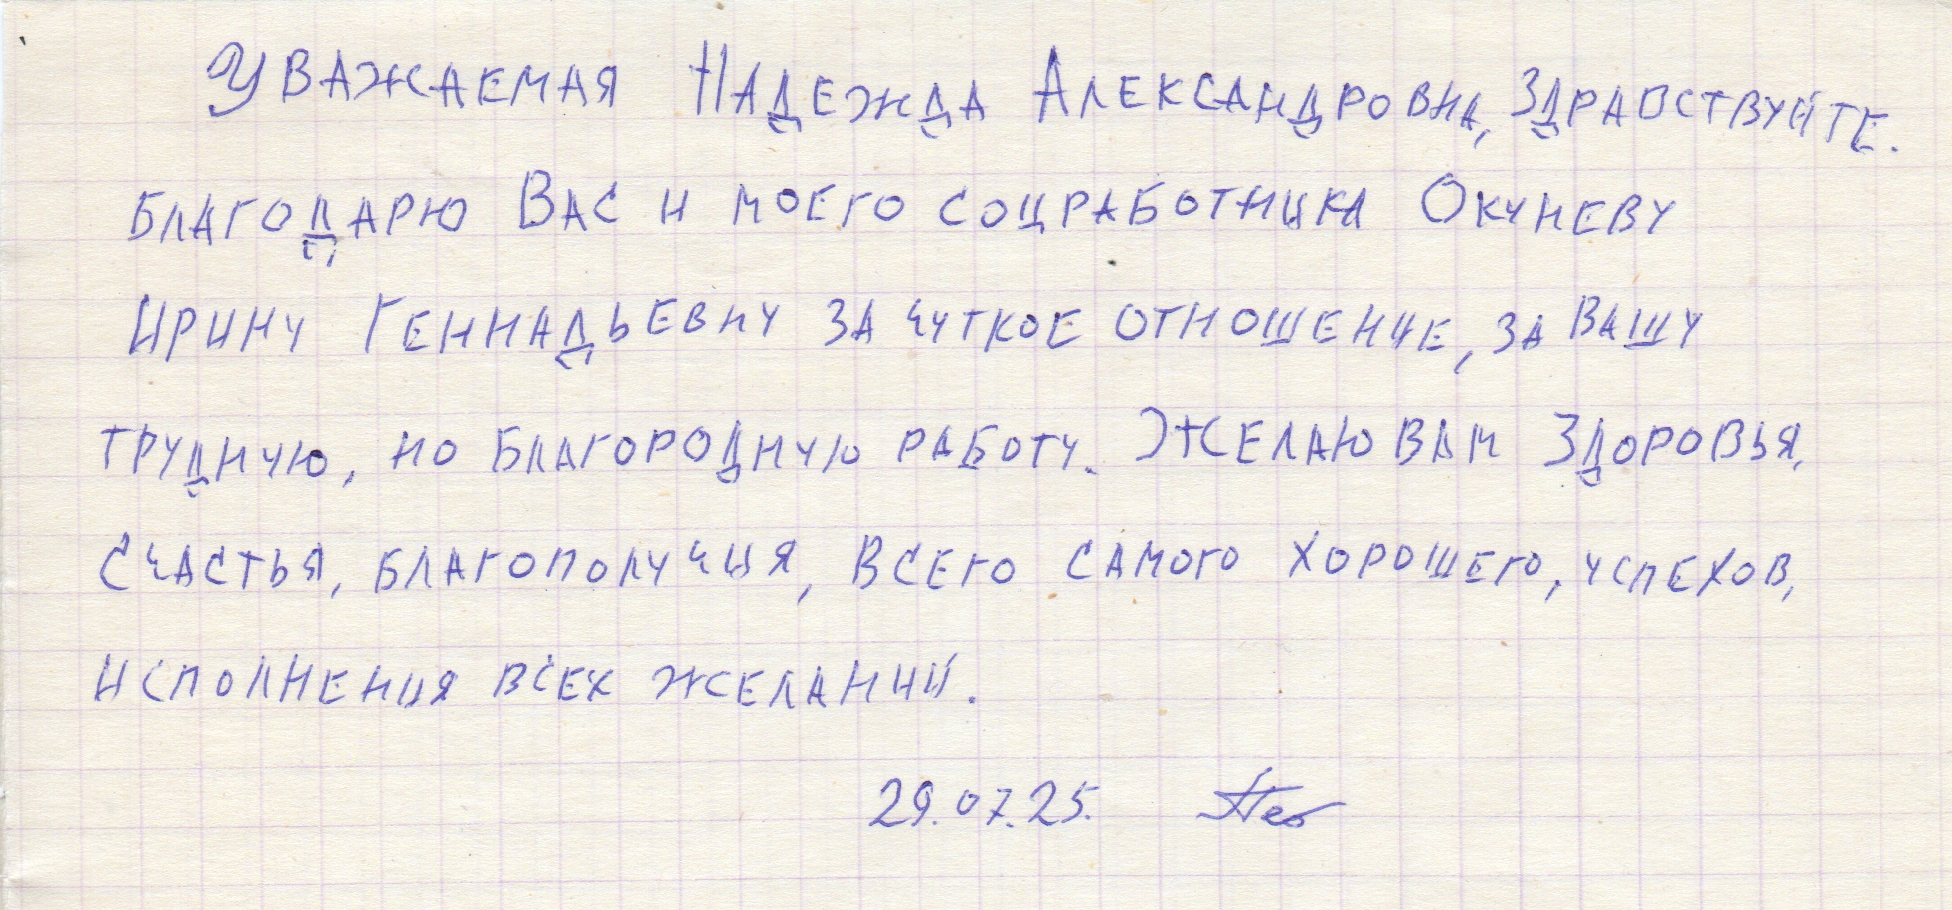 Уважаемая Надежда Александровна, здравствуйте.
Благодарю Вас и моего соцработника Окуневу
Ирину Геннадьевну за чуткое отношение, за вашу
трудную, но благородную работу. Желаю вам здоровья,
счастья, благополучия, всего самого хорошего, успехов,
исполнения всех желаний.
29.07.25.